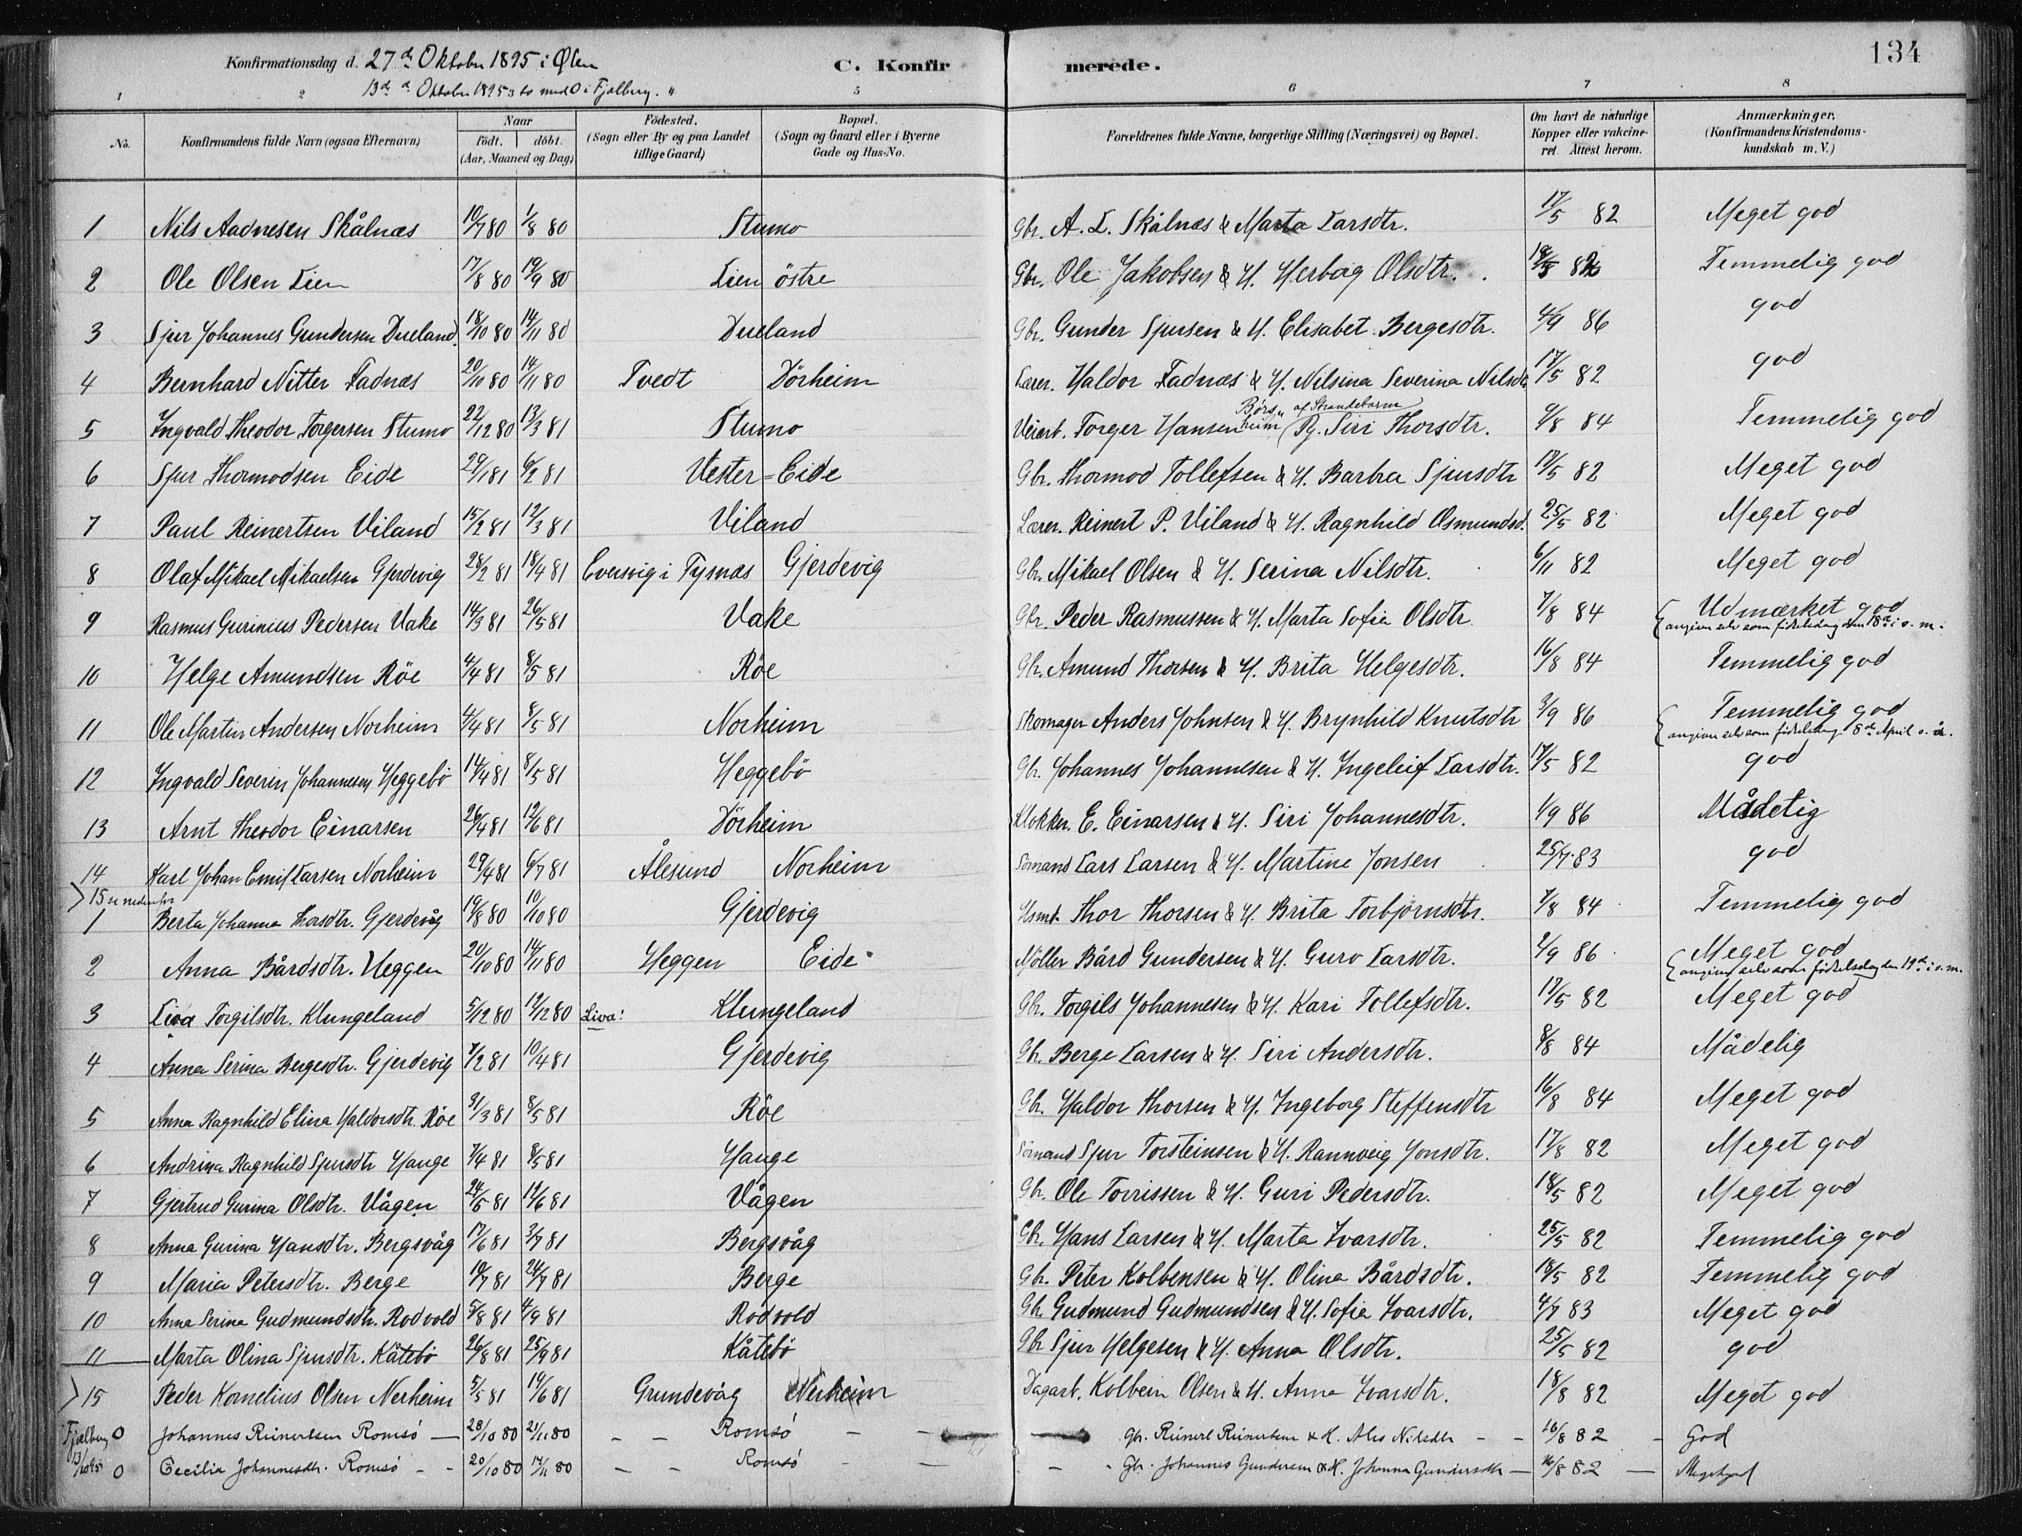 Konfirmationsdag d. 27de Oktober 1895 i Ølen C. Konfirmerede. 134
13de Oktober 1895 i Fjelberg.
1 2 5 6 7 8
No. Konfirmandens fulde Navn (ogsaa Efternavn) Naar født, døbt. (Aar, Maaned og Dag) Fødested. (Sogn eller By og paa Landet tillige Gaard) Bopæl. (Sogn og Gaard eller i Byerne Gade og Hus-No. Forældrenes fulde Navne, borgerlige Stilling (Næringsvei) og Bopæl. Om havt de naturlige Kopper eller vakcineret. Attest herom. Anmærkninger, (Konfirmandens Kristendomskundskab m. V.)
1 Nils Aadnesen Skålnæs 10/7 80 1/8 80 Stumo Gbr. A. L. Skålnæs & Marta Larsdtr. 17/5 82 Meget god
2 Ole Olsen Lien 17/8 80 19/9 80 Lien östre Gbr. Ole Jakobsen & H. Herborg Olsdtr. Temmelig god
3 Sjur Johannes Gundersen Dueland. 18/10 80 14/11 80 Dueland Gbr. Gunder Sjursen & H. Elisabet Bergesdtr. 4/9 86 god
4 Bernhard Nitter Fadnæs 20/10 80 14/11 80 Tvedt Dörheim Lærer. Haldor Fadnæs & H. Nilsina Severina Nilsdtr 17/5 82 god
5 Ingvald Theodor Torgersen Stumo 22/12 80 13/3 81 Stumo Veiarb. Torger Hansen Børsheim (Pg. Siri Thorsdtr. af Strandebarm 9/8 84 Temmelig god
6 Sjur Thormodsen Eide 29/1 81 6/2 81 Vester=Eide Gbr. Thormod Tollefsen & H. Barbra Sjursdtr 17/5 82 Meget god
7 Paul Reinertsen Viland 15/2 81 12/3 81 Viland Lærer. Reinert P. Viland & H. Ragnhild Osmundsd. 25/5 82 Meget god
8 Olaf Mikael Mikaelsen Gjerdevig 28/2 81 18/4 81 Eversvig i Tysnæs Gjerdevig Gbr. Mikael Olsen & H. Serina Nilsdtr. 6/11 82 Meget god
9 Rasmus Gurinius Pedersen Vake 14/3 81 26/5 81 Vake Gbr. Peder Rasmussen & H. Marta Sofia Olsdtr 7/8 84 Udmærket god
(angiver selv som fødselsdag den 18de i s. m.
10 Helge Amundsen Röe 4/4 81 8/5 81 Röe Gbr. Amund Thorsen & H. Brita Helgesdtr. 16/8 84 Temmelig god
11 Ole Martin Andersen Norheim 4/4 81 8/5 81 Norheim Skomager Anders Johnsen & H. Brynhild Knutsdtr 3/9 86 Temmelig god
(angiver selv som fødselsdag 8de April s. år.
12 Ingvald Severin Johannesen Heggebö 14/4 81 8/5 81 Heggebö Gbr. Johannes Johannesen & H. Ingeleif Larsdtr. 17/5 82 god
13 Arnt Theodor Einarsen 26/4 81 12/6 81 Dörheim Klokker. E. Einarsen & H. Siri Johannesdtr. 1/9 86 Mådelig
14 Karl Johan Emil Larsen Norheim 29/4 81 6/7 81 Ålesund Norheim Sömand Lars Larsen & H. Martine Jonsen 25/7 83 god
> 15 se nedenfor
1 Berta Johanna Thorsdtr. Gjerdevig 19/8 80 10/10 80 Gjerdevig Husmd. Thor Thorsen & H. Brita Torbjørnsdtr. 7/8 84 Temmelig god
2 Anna Bårdsdtr. Heggen 21/10 80 14/11 80 Heggen Eide Möller Bård Gundersen & H. Guro Larsdtr. 2/9 86 Meget god
(angiver selv som fødselsdag den 19de i s. m.
3 Liva Torgilsdtr. Klungeland 5/12 80 19/12 80 Liva! Klungeland Gbr. Torgils Johannesen & H. Kari Tollefsdtr. 17/5 82 Meget god
4 Anna Serina Bergesdtr. Gjerdevig 7/2 81 10/4 81 Gjerdevig Gbr. Berge Larsen & H. Siri Andersdtr. 8/8 84 Mådelig
5 Anna Ragnhild Elina Haldorsdtr. Röe 31/3 81 8/5 81 Röe Gbr. Haldor Thorsen & H. Ingeborg Steffensdtr 16/8 84 Meget god
6 Andrina Ragnhild Sjursdtr Hauge 7/4 81 8/5 81 Hauge Sömand Sjur Torsteinsen & H. Rannveig Jonsdtr. 17/8 82 Meget god
7 Gjertrud Gurina Olsdtr. Vågen 24/5 81 12/6 81 Vågen Gbr. Ole Torrissen & H. Guri Pedersdtr. 18/5 82 Meget god
8 Anna Gurina Hansdtr. Bergsvåg 17/6 81 3/7 81 Bergsvåg Gbr. Hans Larsen & H. Marta Ivarsdtr. 25/5 82 Temmelig god
9 Maria Petersdtr. Berge 10/7 81 24/7 81 Berge Gbr. Peter Kolbensen & H. Olina Bårdsdtr. 18/5 82 Temmelig god
10 Anna Serina Gudmundsdtr. Rodvold 5/8 81 4/9 81 Rodvold Gbr Gudmund Gudmundsen & H. Sofia Ivarsdtr. 4/7 83 Meget god
11 Marta Olina Sjursdtr. Kåtebö 26/8 81 25/9 81 Kåtebö Gbr Sjur Helgesen & H. Anna Olsdtr. 25/5 82 god
> 15 Peder Kornelius Olsen Nerheim 5/5 81 19/6 81 Grundevåg Nerheim Dagarb. Kolbein Olsen & H. Anna Ivarsdtr. 18/8 82 Meget god
Fjelberg 0 Johannes Reinertsen Romsö — 28/10 80 21/11 80 – – Romsö – – Gbr. Reinert Reinertsen & H. Nilsdtr – – 16/8 82 – God
13/10 95 0 Cecilia Johannesdtr. Romsö – – 20/10 80 14/11 80 – – Romsö – – Gbr. Johannes Gundersen & H. Johanna Gundersdtr — 16/8 82 — Meget god